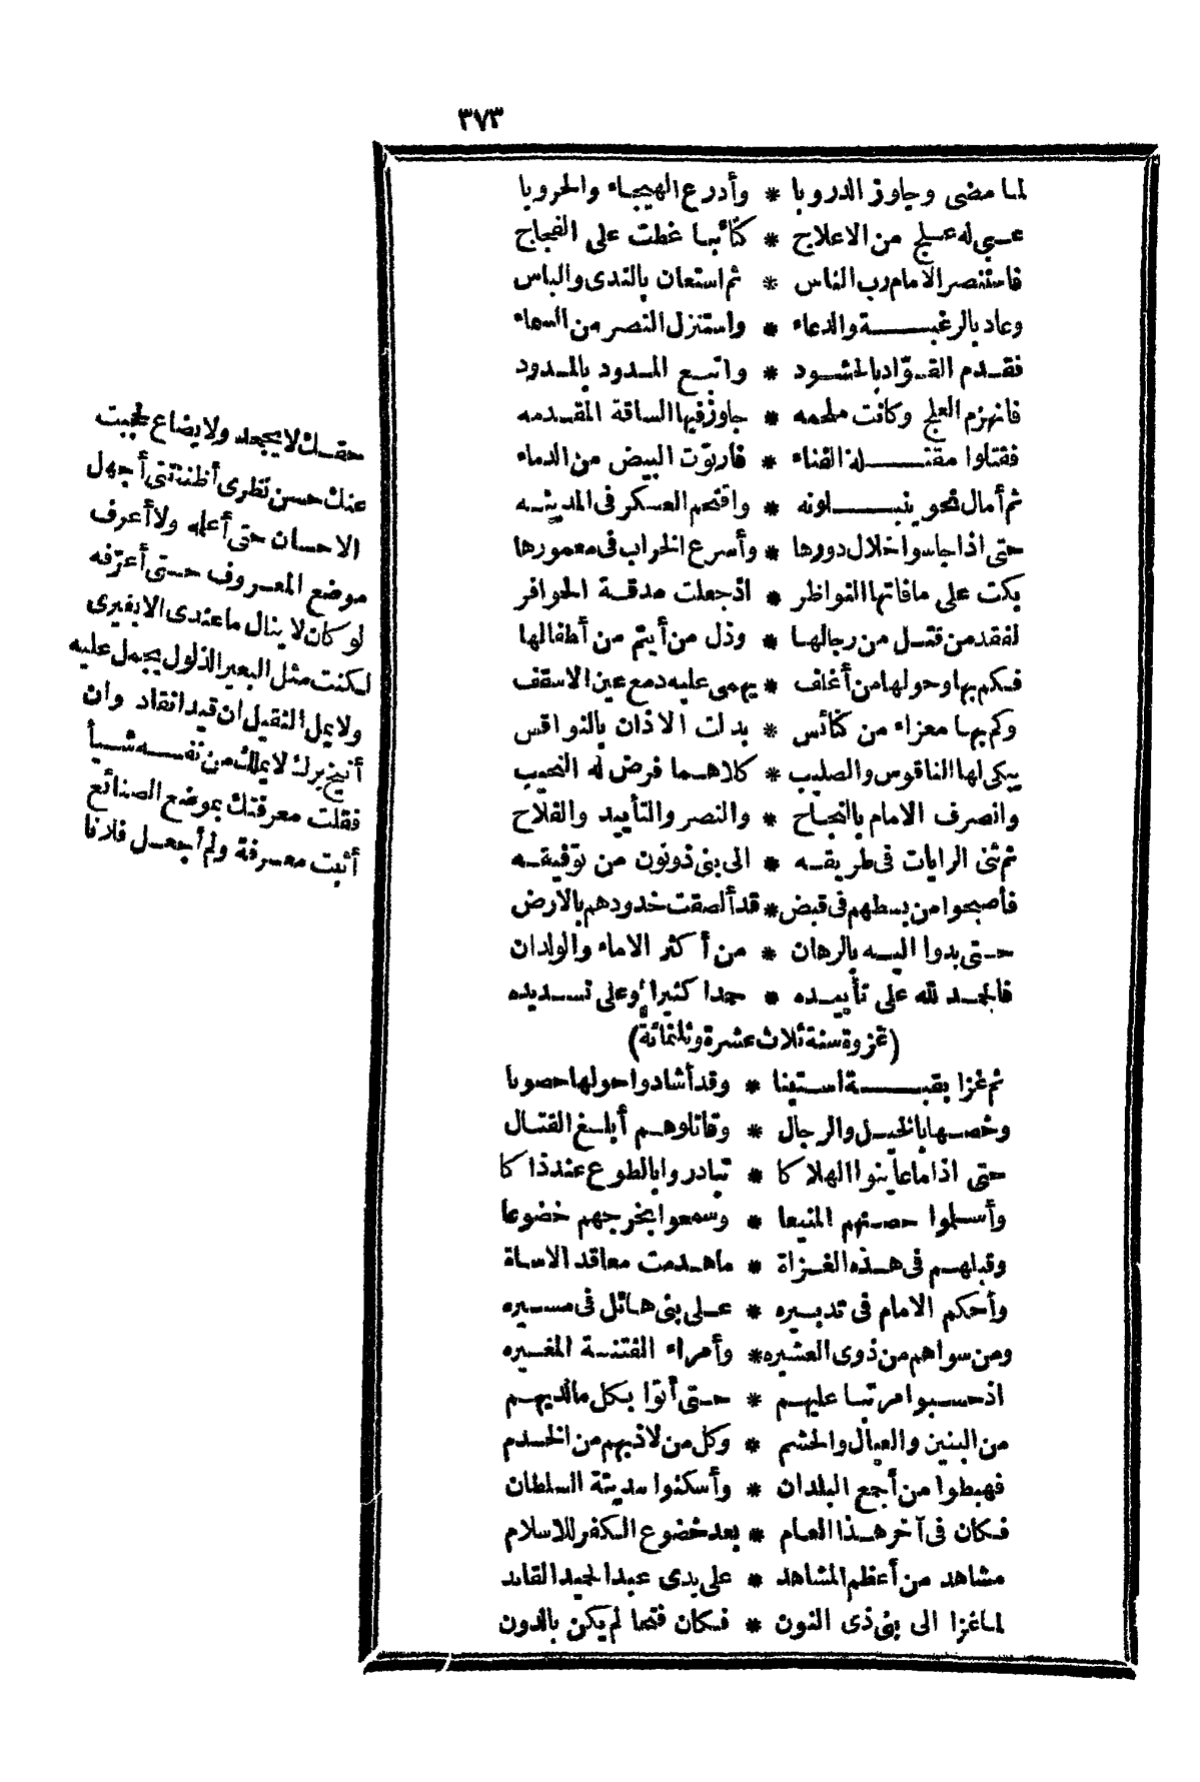 ٣٧٣
لما مضى وجاوز الدروبا * وأدرع الهيجاء والحروبا
عبى له علج من الاعلاج * كتائبا غطت على الفجاج
فاستنصر الامام رب الناس * ثم استعان بالندى والباس
وعاد بالرغبة والدعاء * واستنزل النصر من السماء
فقدم القوّاد بالحشود * واتبع المدود بالمدود
فانهزم العلج وكانت ملحمه * جاوز فيها الساقة المقدمه
فقتلوا مقتلة الفناء * فارتوت البيض من الدماء
ثم أمال نحو ينبلونه * واقتحم العسكر فى المدينه
حتى اذا جاسوا خلال دورها * وأسرع الخراب فى معمورها
بكت على مافاتها النواظر * اذ جعلت مدقة الحوافر
لفقد من قتل من رجالها * وذل من أيتم من أطفالها
فكم بها وحولها من أغلف * يهمى عليه دمع عين الاسقف
وكم بها معزاء من كنائس * بدلت الاذان بالنواقس
يبكى لها الناقوس والصليب * كلاهما فرض له النحيب
وانصرف الامام بالنجاح * والنصر والتأييد والفلاح
ثم ثنى الرايات فى طريقه * الى بنى ذونون من توفيقه
فأصبحوا من بسطهم فى قبض * قد ألصقت خدودهم بالارض
حتى بدوا اليه بالرهان * من أكثر الاماء والولدان
فالحمد لله على تأييده * حمدا كثيرا وعلى تسديده
(غزوة سنة ثلاث عشرة وثلثمائة)
ثم غزا بقبة استينا * وقد أشادوا حولها حصونا
وخصها بالخيل والرجال * وقاتلوهم أبلغ القتال
حتى اذا ما عاينوا الهلاكا * تبادروا بالطوع عند ذاكا
وأسلموا حصنهم المنيعا * وسمعوا بخرجهم خضوعا
وقبلهم فى هذه الغزاة * ماهدمت معاقد الاساة
وأحكم الامام فى تدبيره * على بنى هائل فى مسيره
ومن سواهم من ذوى العشيره * وأمراء الفتنة المغيره
اذ حسبوا مرتبا عليهم * حتى أتوا بكل مالديهم
من البنين والعيال والحشم * وكل من لاذ بهم من الخدم
فهبطوا من أجمع البلدان * وأسكنوا مدينة السلطان
فكان فى آخر هذا العام * بعد خضوع الكفر للاسلام
مشاهد من أعظم المشاهد * على يدى عبد الحميد القائد
لما غزا الى بنى ذى النون * فكان فتحا لم يكن بالدون
حقك لا يجحد ولا يضاع لحجبت
عنك حسن نظرى أظننتنى أجهل
الاحسان حتى أعلمه ولا أعرف
موضع المعروف حتى أعرّفه
لو كان لا ينال ماعندى الا بغيرى
لكنت مثل البعير الذلول يحمل عليه
ولا يمل الثقيل ان قيد انقاد وان
أنيخ برك لا يملك من نفسه شيأ
فقلت معرفتك بموضع الصنائع
أثبت معرفة ولم أجعل فلانا